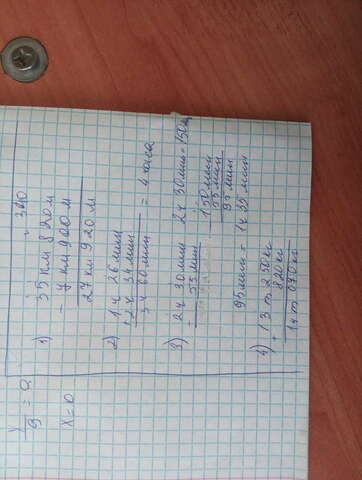 9 = 0
x=0
1) 35 км 820 м
- 7 км 900 м
27 км 920 м
2) 1 ч 26 мин
+ 2 ч 34 мин
3 ч 60 мин = 4 часа
3) - 2 ч 30 мин 2 ч 30 мин = 150
55 мин
- 150 мин
55 мин
95 мин
95 мин = 1 ч 35 мин
4) + 13 т 250 кг
820 кг
14 т 070 кг